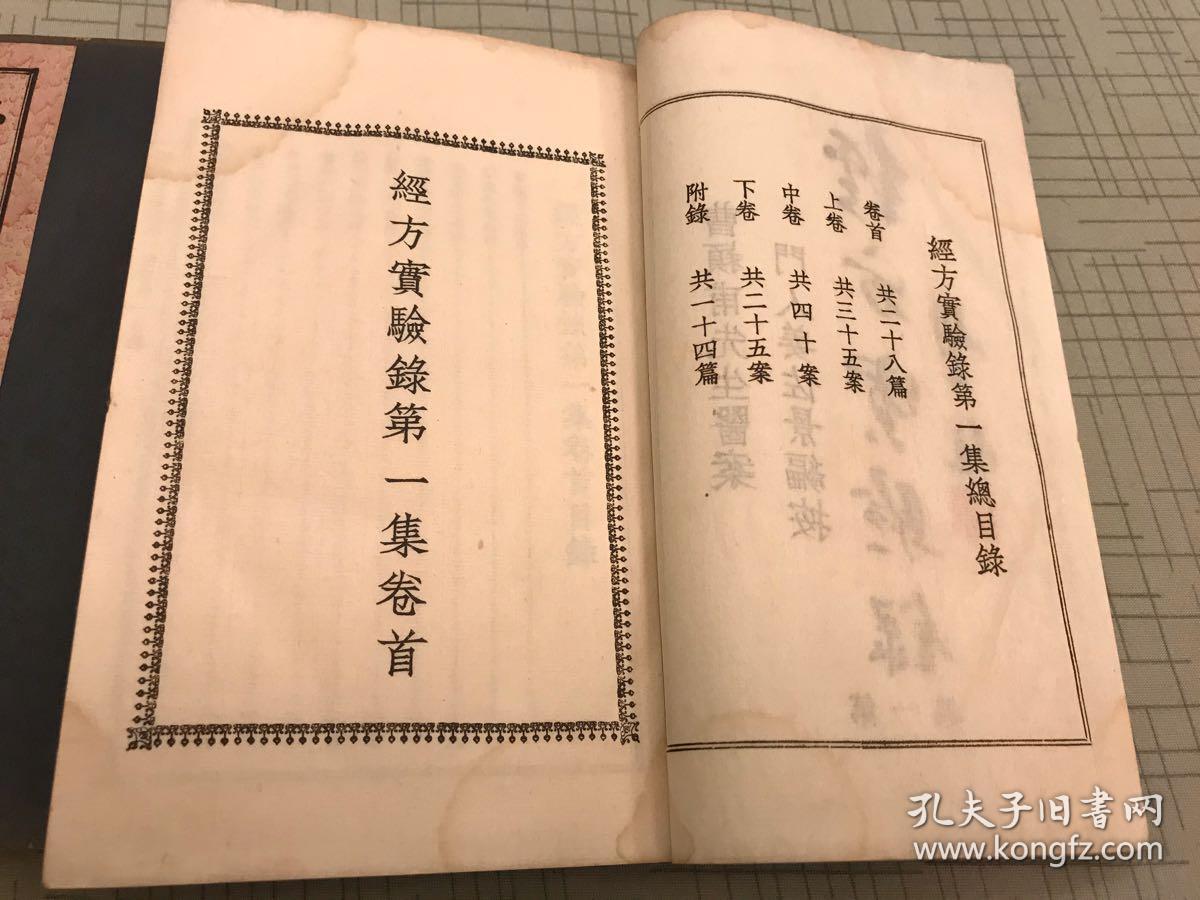 經方實驗錄第一集總目錄
卷首 共二十八篇
上卷 共三十五案
中卷 共四十案
下卷 共二十五案
附錄 共一十四篇
經方實驗錄第一集卷首
孔夫子旧书网
www.kongfz.com